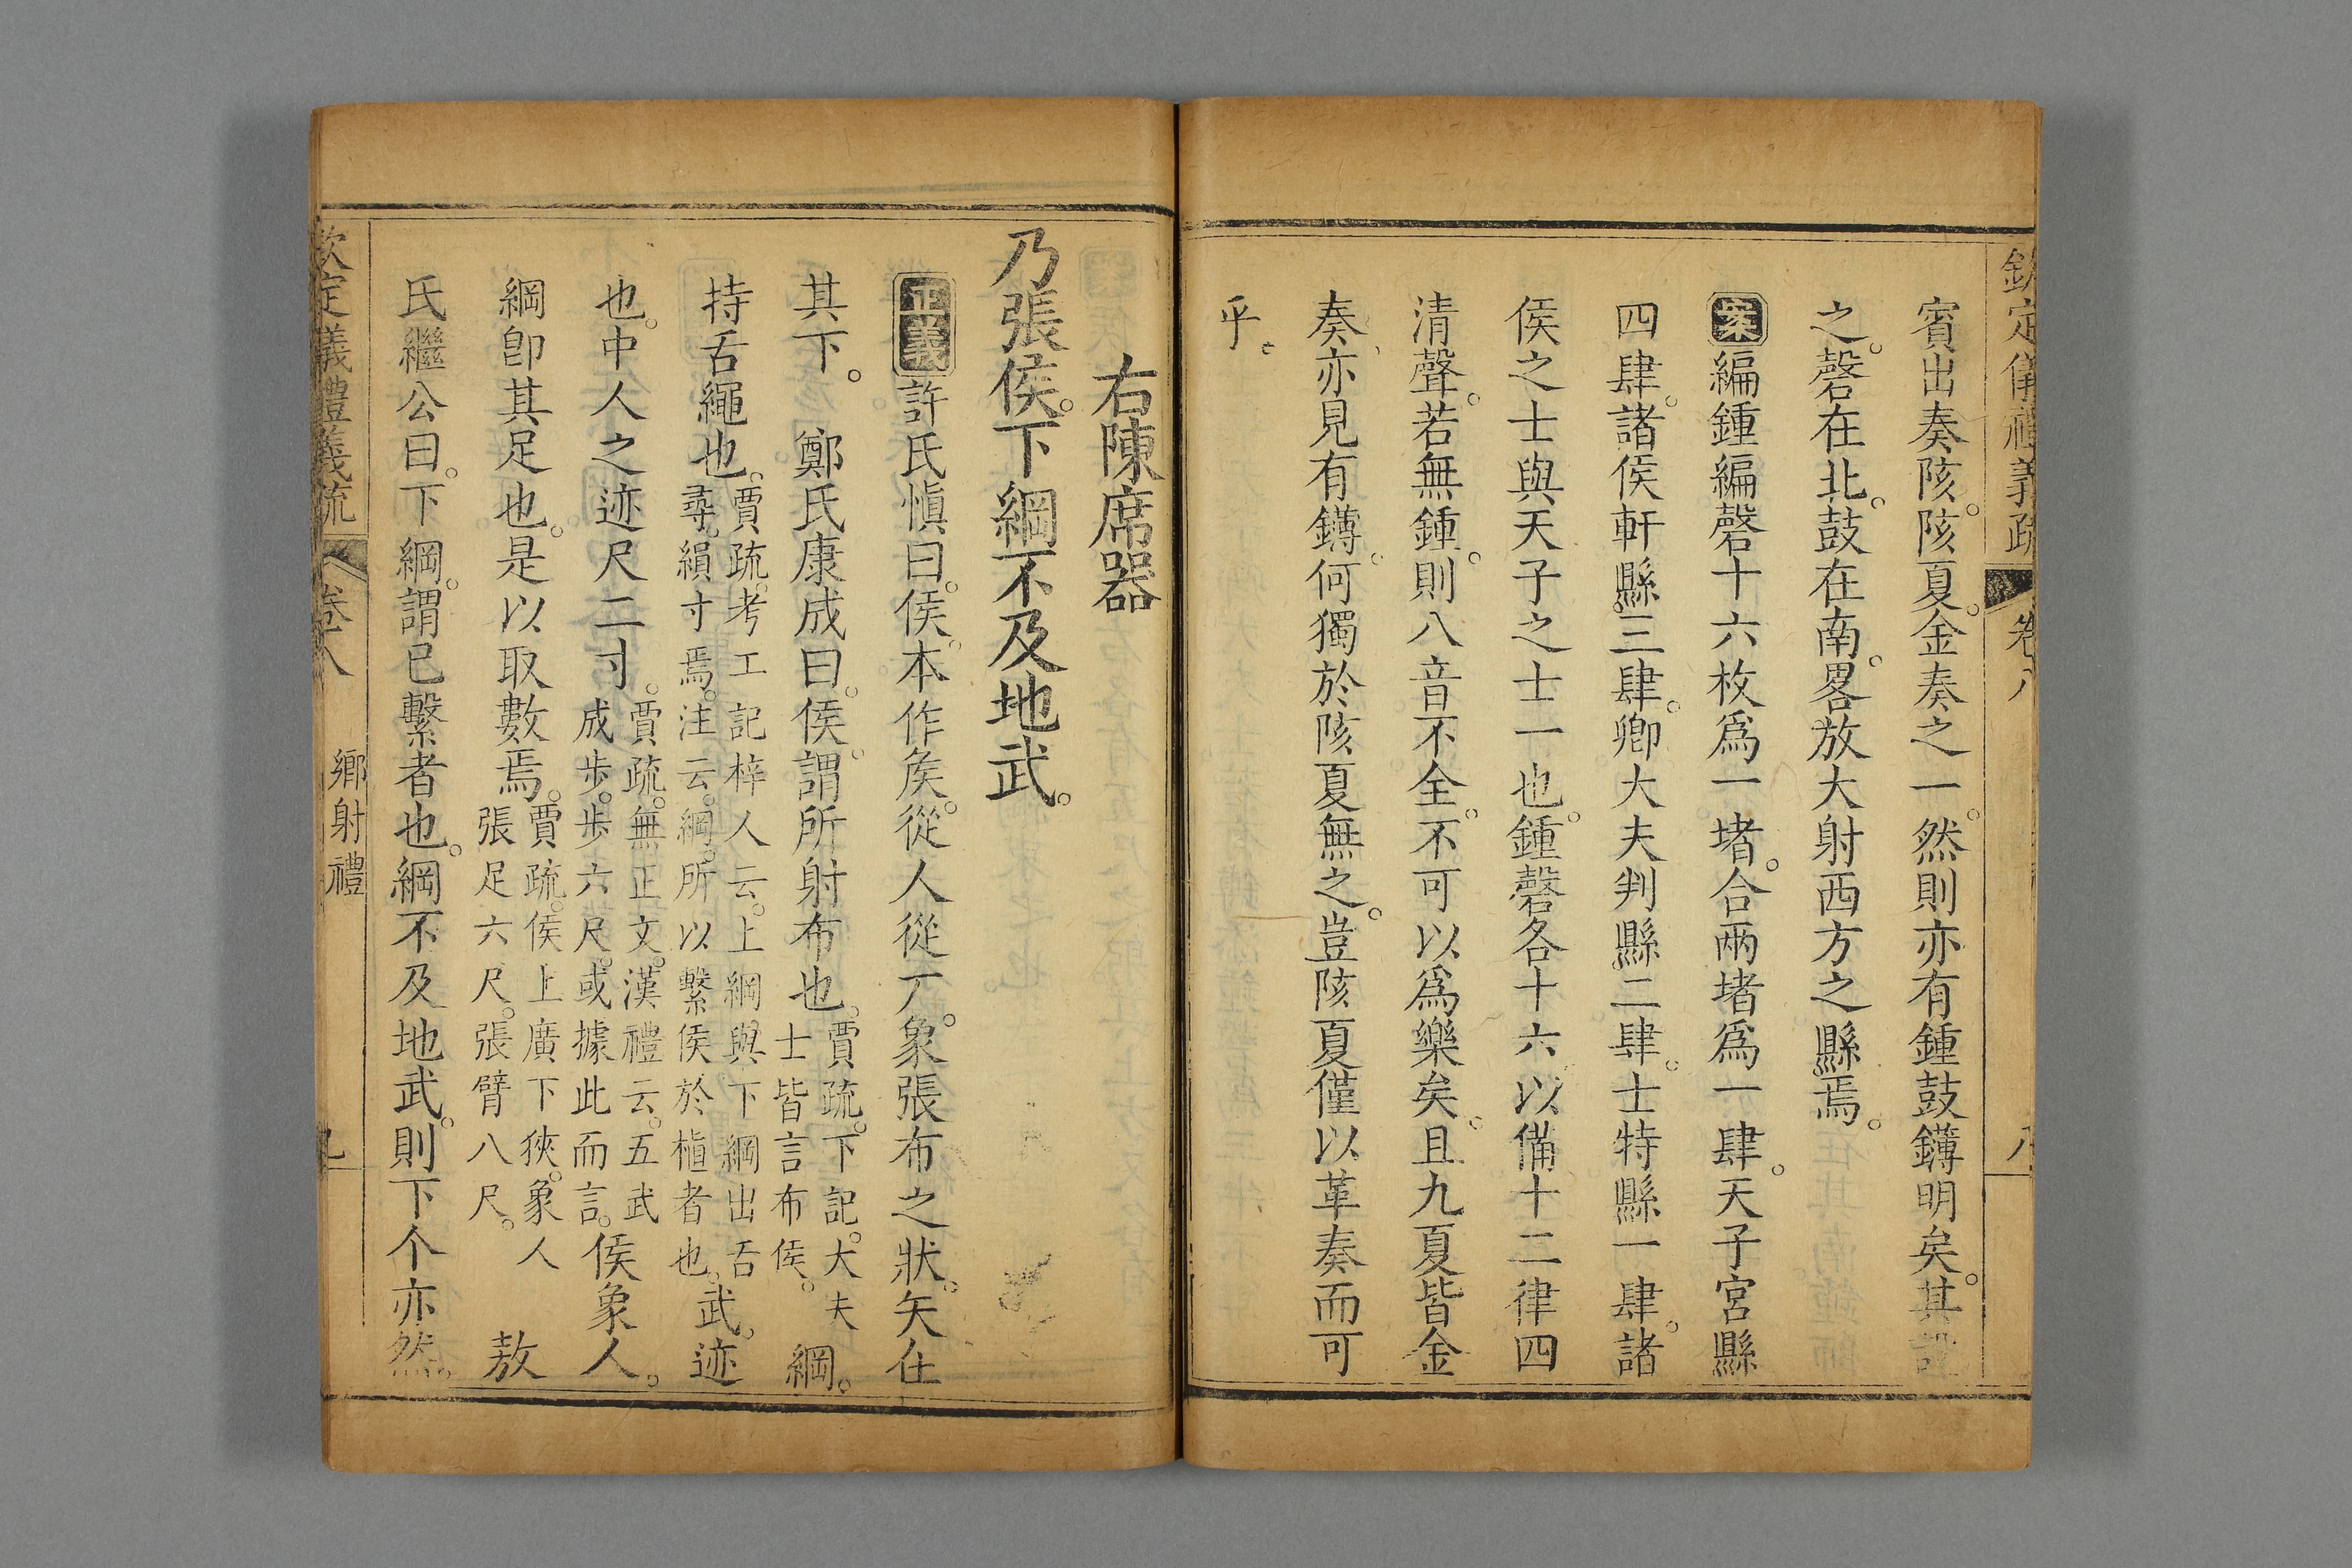 欽定儀禮義疏 卷八 八
賓出奏陔。陔夏。金奏之一。然則亦有鍾鼓鑮明矣。其設
之。磬在北。鼓在南。畧放大射西方之縣焉。
案編鍾編磬十六枚爲一堵。合兩堵爲一肆。天子宮縣
四肆。諸侯軒縣。三肆。卿大夫判縣。二肆。士特縣一肆。諸
侯之士與天子之士一也。鍾磬各十六以備十二律四
清聲。若無鍾。則八音不全。不可以爲樂矣。且九夏皆金
奏。亦見有鑮。何獨於陔夏無之。豈陔夏僅以革奏而可
乎。
右陳席器
乃張侯。下綱不及地武。
正義許氏愼曰。侯。本作矦。從人從厂。象張布之狀。矢在
其下。 鄭氏康成曰。侯。謂所射布也。賈疏。下記。大夫士皆言布侯。 綱。
持舌繩也。賈疏。考工記梓人云。上綱與下綱出舌尋。縜寸焉。注云。綱。所以繫侯於植者也。武。迹
也。中人之迹尺二寸。賈疏。無正文。漢禮云。五武成步。步六尺。或據此而言。侯象人。
綱卽其足也。是以取數焉。賈疏。侯上廣下狹。象人張足六尺。張臂八尺。 敖
氏繼公曰。下綱。謂已繫者也。綱不及地武。則下个亦然。
欽定儀禮義疏 卷八 鄉射禮 九